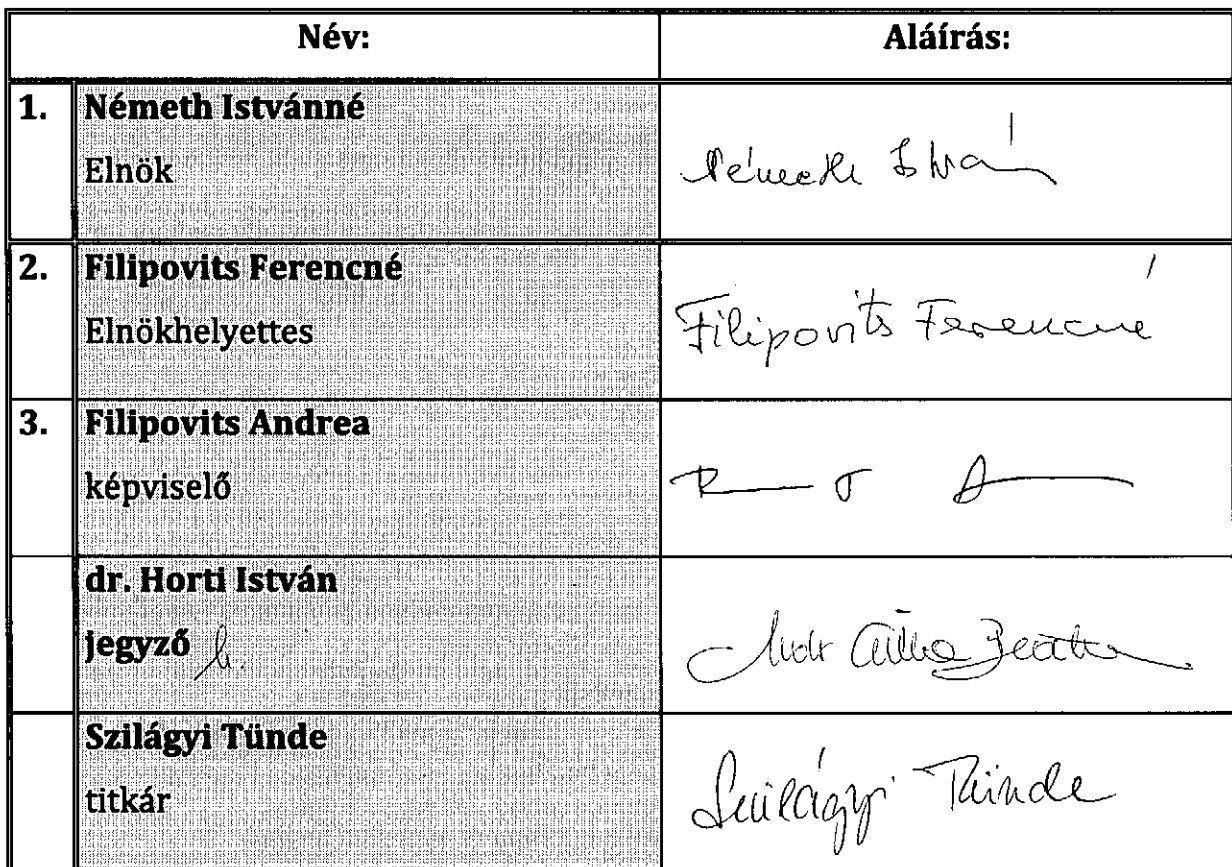 Név: Aláírás:
1. Németh Istvánné
Elnök
Németh
2. Filipovits Ferencné
Elnökhelyettes
Filipovits Ferencné
3. Filipovits Andrea
képviselő
dr. Horti István
jegyző h.
Szilágyi Tünde
titkár
Szilágyi Tünde